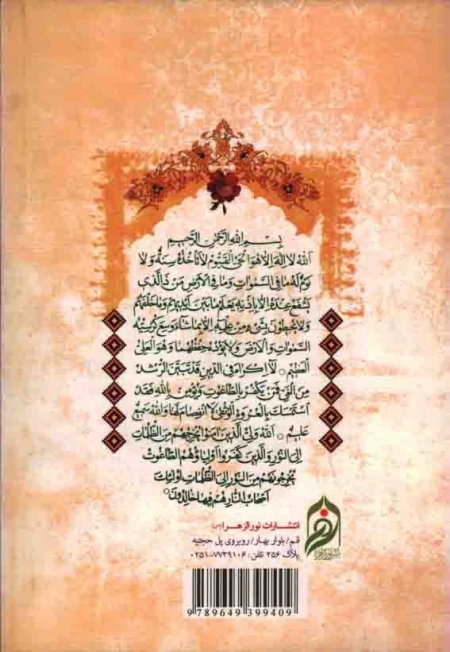 بِسْمِ اللهِ الرَّحْمٰنِ الرَّحِيمِ
اَللهُ لا اِلٰهَ اِلاّ هُوَ الْحَىُّ الْقَيُّومُ لا تَأْخُذُهُ سِنَةٌ وَلا
نَوْمٌ لَهُ ما فِى السَّمٰوَاتِ وَما فِى الْاَرْضِ مَنْ ذَا الَّذى
يَشْفَعُ عِنْدَهُ اِلاّ بِاِذْنِهِ يَعْلَمُ ما بَيْنَ اَيْديهِمْ وَما خَلْفَهُمْ
وَلا يُحيطُونَ بِشَىْءٍ مِنْ عِلْمِهِ اِلاّ بِما شاءَ وَسِعَ كُرْسِيُّهُ
السَّمٰوَاتِ وَالْاَرْضَ وَلا يَؤُدُهُ حِفْظُهُما وَهُوَ الْعَلِىُّ
الْعَظيمُ ۞ لا اِكْراهَ فِى الدّينِ قَدْ تَبَيَّنَ الرُّشْدُ
مِنَ الْغَىِّ فَمَنْ يَكْفُرْ بِالطّاغُوتِ وَيُؤْمِنْ بِاللهِ فَقَدِ
اسْتَمْسَكَ بِالْعُرْوَةِ الْوُثْقىٰ لاَ انْفِصامَ لَها وَاللهُ سَميعٌ
عَليمٌ ۞ اَللهُ وَلِىُّ الَّذينَ اٰمَنُوا يُخْرِجُهُمْ مِنَ الظُّلُماتِ
اِلَى النُّورِ وَالَّذينَ كَفَرُوا اَوْلِياؤُهُمُ الطّاغُوتُ
يُخْرِجُونَهُمْ مِنَ النُّورِ اِلَى الظُّلُماتِ اُولٰئِكَ
اَصْحابُ النّارِ هُمْ فيها خالِدُونَ ۞
انتشارات نورالزهرا(س)
قم/ بلوار بهار/ روبروی پل حجتیه
پلاک ۳۵۶ تلفن: ۷۷۳۹۱۰۶-۰۲۵۱
9 789649 399409